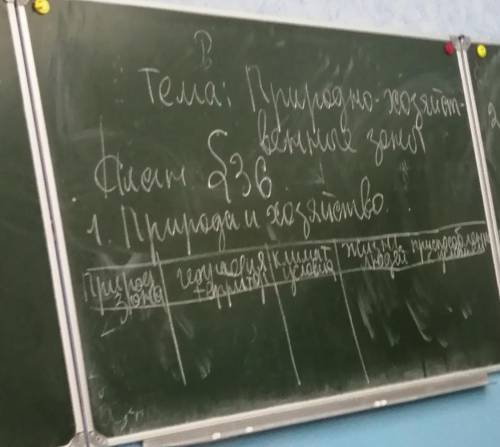 В
Тема: Природно-хозяйст-
венные зоны
План §36
1. Природа и хозяйство.
Природ зона
география территор
климат условия
жизнь людей
приспособлен
2